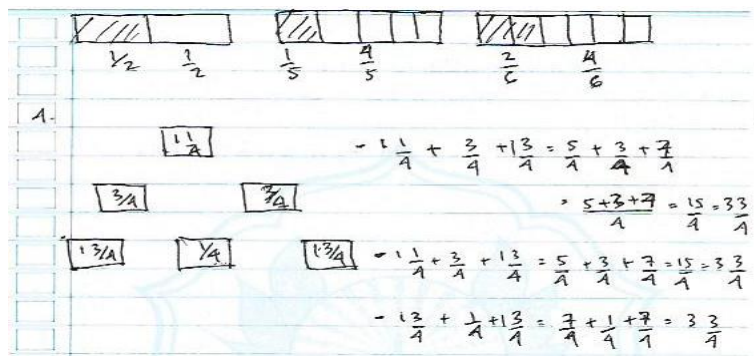 1/2 1/2 1/5 4/5 2/6 4/6
4.
1 1/4
3/4 3/4
1 3/4 1/4 1 3/4
- 1 1/4 + 3/4 + 1 3/4 = 5/4 + 3/4 + 7/4
= (5+3+7)/4 = 15/4 = 3 3/4
- 1 1/4 + 3/4 + 1 3/4 = 5/4 + 3/4 + 7/4 = 15/4 = 3 3/4
- 1 3/4 + 1/4 + 1 3/4 = 7/4 + 1/4 + 7/4 = 3 3/4